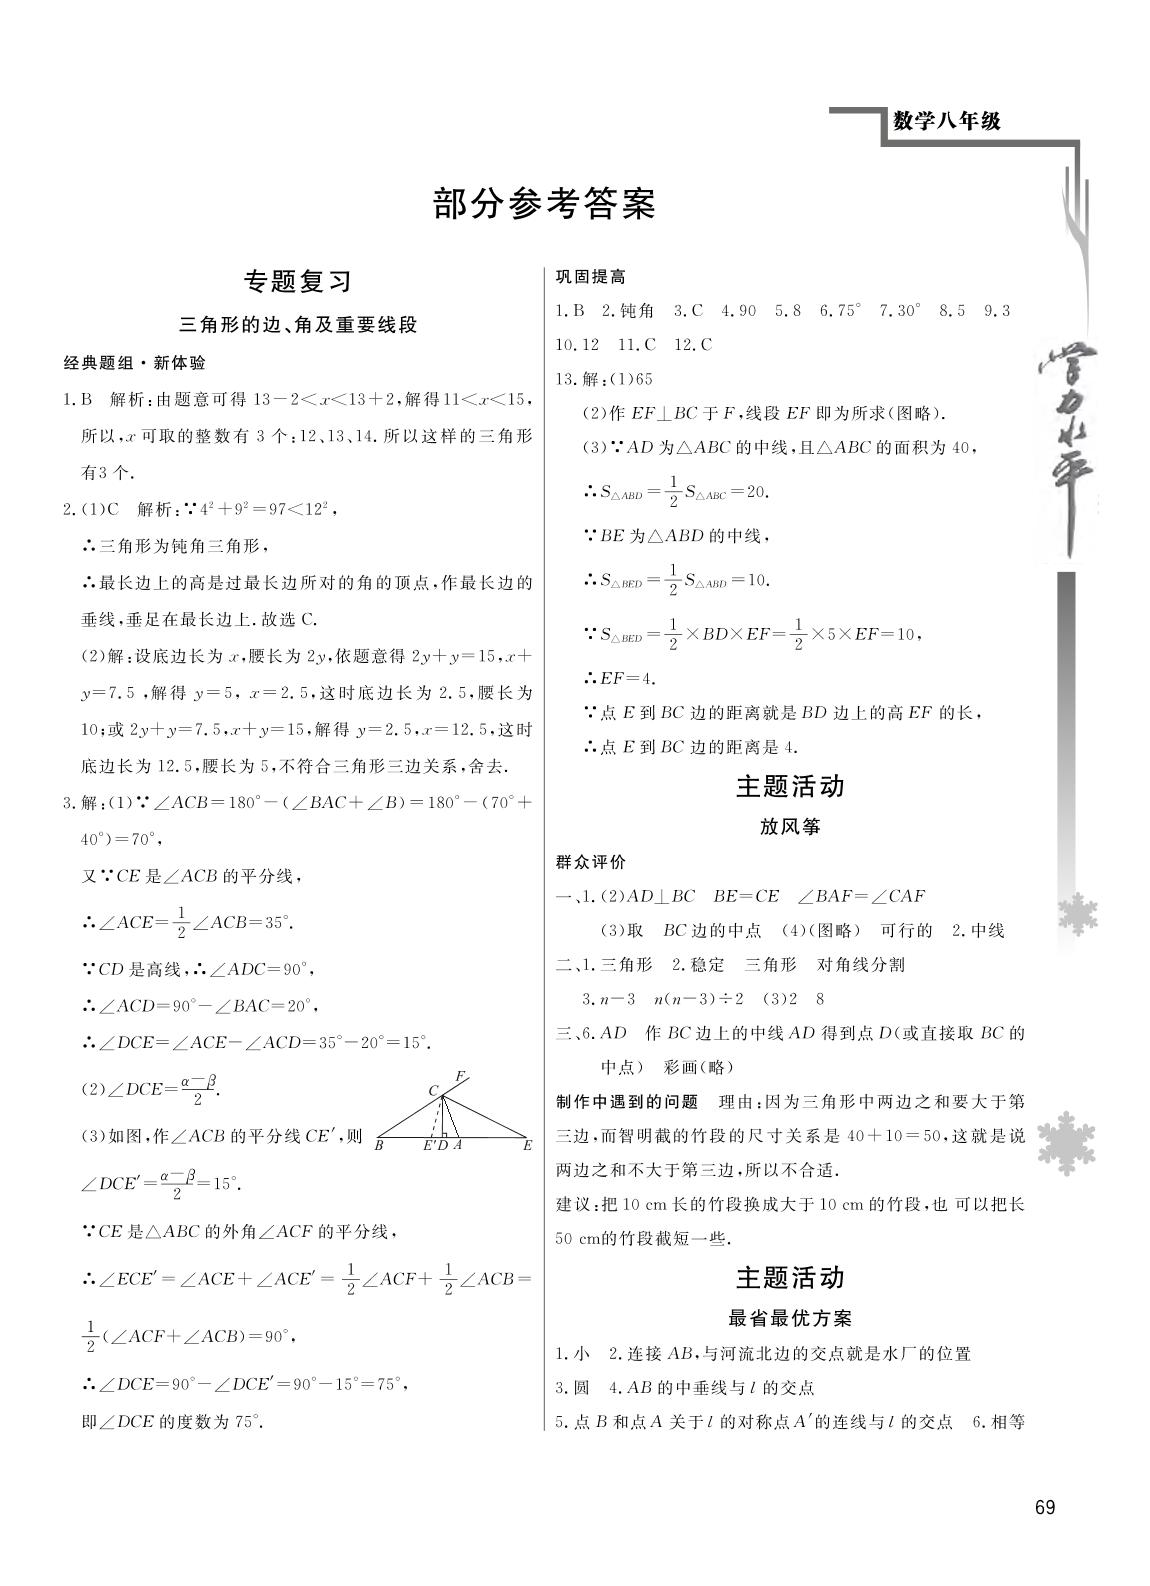 数学八年级
部分参考答案
专题复习
三角形的边、角及重要线段
经典题组·新体验
1. B 解析:由题意可得 13-2<x<13+2,解得11<x<15,
所以,x 可取的整数有 3 个:12、13、14. 所以这样的三角形
有3 个.
2. (1)C 解析:∵4²+9²=97<12²,
∴三角形为钝角三角形,
∴最长边上的高是过最长边所对的角的顶点,作最长边的
垂线,垂足在最长边上. 故选 C.
(2)解:设底边长为 x,腰长为 2y,依题意得 2y+y=15,x+
y=7.5 ,解得 y=5, x=2.5,这时底边长为 2.5,腰长为
10;或 2y+y=7.5,x+y=15,解得 y=2.5,x=12.5,这时
底边长为 12.5,腰长为 5,不符合三角形三边关系,舍去.
3. 解:(1)∵∠ACB=180°-(∠BAC+∠B)=180°-(70°+
40°)=70°,
又∵CE 是∠ACB 的平分线,
∴∠ACE=1/2∠ACB=35°.
∵CD 是高线,∴∠ADC=90°,
∴∠ACD=90°-∠BAC=20°,
∴∠DCE=∠ACE-∠ACD=35°-20°=15°.
(2)∠DCE=(α-β)/2.
(3)如图,作∠ACB 的平分线 CE′,则
F
C
B E′ D A E
∠DCE′=(α-β)/2=15°.
∵CE 是△ABC 的外角∠ACF 的平分线,
∴∠ECE′=∠ACE+∠ACE′=1/2∠ACF+1/2∠ACB=
1/2(∠ACF+∠ACB)=90°,
∴∠DCE=90°-∠DCE′=90°-15°=75°,
即∠DCE 的度数为 75°.
巩固提高
1. B 2. 钝角 3. C 4. 90 5. 8 6. 75° 7. 30° 8. 5 9. 3
10. 12 11. C 12. C
13. 解:(1)65
(2)作 EF⊥BC 于 F,线段 EF 即为所求(图略).
(3)∵AD 为△ABC 的中线,且△ABC 的面积为 40,
∴S△ABD=1/2S△ABC=20.
∵BE 为△ABD 的中线,
∴S△BED=1/2S△ABD=10.
∵S△BED=1/2×BD×EF=1/2×5×EF=10,
∴EF=4.
∵点 E 到 BC 边的距离就是 BD 边上的高 EF 的长,
∴点 E 到 BC 边的距离是 4.
主题活动
放风筝
群众评价
一、1. (2)AD⊥BC BE=CE ∠BAF=∠CAF
(3)取 BC 边的中点 (4)(图略) 可行的 2. 中线
二、1. 三角形 2. 稳定 三角形 对角线分割
3. n-3 n(n-3)÷2 (3)2 8
三、6. AD 作 BC 边上的中线 AD 得到点 D(或直接取 BC 的
中点) 彩画(略)
制作中遇到的问题 理由:因为三角形中两边之和要大于第
三边,而智明截的竹段的尺寸关系是 40+10=50,这就是说
两边之和不大于第三边,所以不合适.
建议:把 10 cm 长的竹段换成大于 10 cm 的竹段,也 可以把长
50 cm的竹段截短一些.
主题活动
最省最优方案
1. 小 2. 连接 AB,与河流北边的交点就是水厂的位置
3. 圆 4. AB 的中垂线与 l 的交点
5. 点 B 和点 A 关于 l 的对称点 A′的连线与 l 的交点 6. 相等
学力水平
69